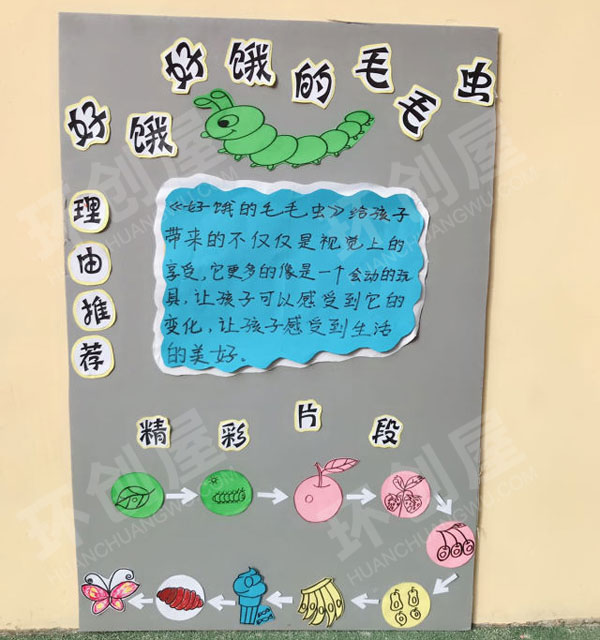 好饿 好饿的毛毛虫
理由推荐
《好饿的毛毛虫》给孩子
带来的不仅仅是视觉上的
享受,它更多的像是一个会动的玩
具,让孩子可以感受到它的
变化,让孩子感受到生活
的美好。
精彩片段
环创屋
HUANCHUANGWU.COM
环创屋
HUANCHUANGWU.COM
环创屋
HUANCHUANGWU.COM
环创屋
HUANCHUANGWU.COM